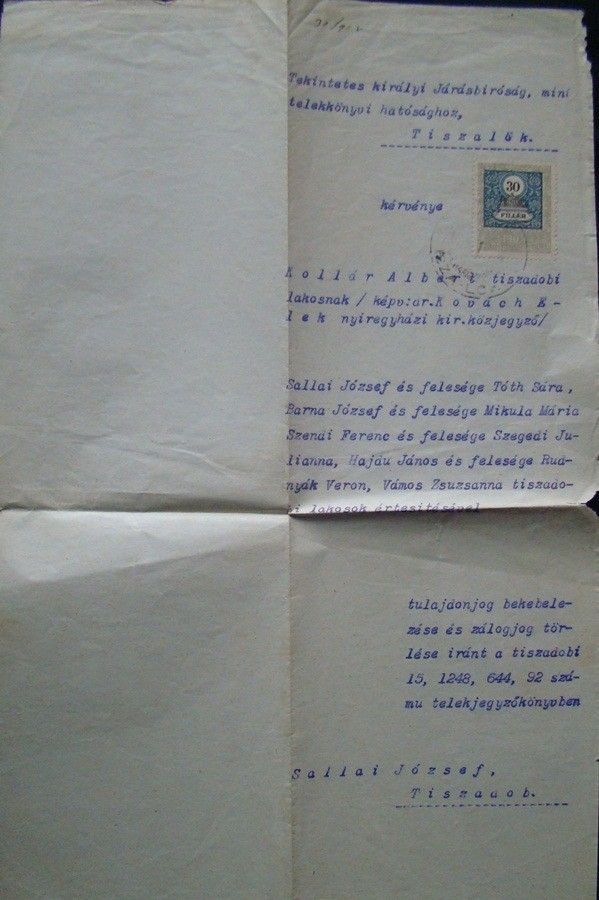 Tekintetes királyi Járásbiróság, mint
telekkönyvi hatósághoz,
Tiszalök.
30
FILLÉR
kérvénye
Kollár Albert tiszadobi
lakosnak / képv:dr.Kovách E-
lek nyiregyházi kir.közjegyző/
Sallai József és felesége Tóth Sára,
Barna József és felesége Mikula Mária
Szendi Ferenc és felesége Szegedi Ju-
lianna, Hajdu János és felesége Rud-
nyák Veron, Vámos Zsuzsanna tiszado-
bi lakosok értesitésével
tulajdonjog bekebele-
zése és zálogjog tör-
lése iránt a tiszadobi
15, 1248, 644, 92 szá-
mu telekjegyzőkönyvben
Sallai József,
Tiszadob.